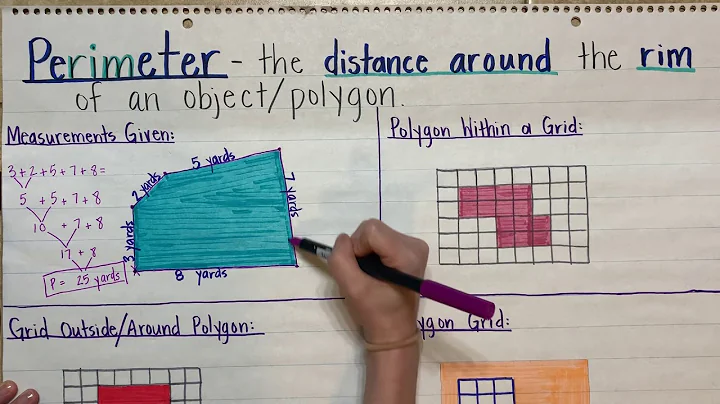 Perimeter - the distance around the rim
of an object/polygon.
Measurements Given:
3+2+5+7+8=
5 +5+7+8
10 +7+8
17+8
P= 25 yards
5 yards
2 yards
7 yards
3 yards
8 yards
Polygon Within a Grid:
Grid Outside/Around Polygon:
Grid: